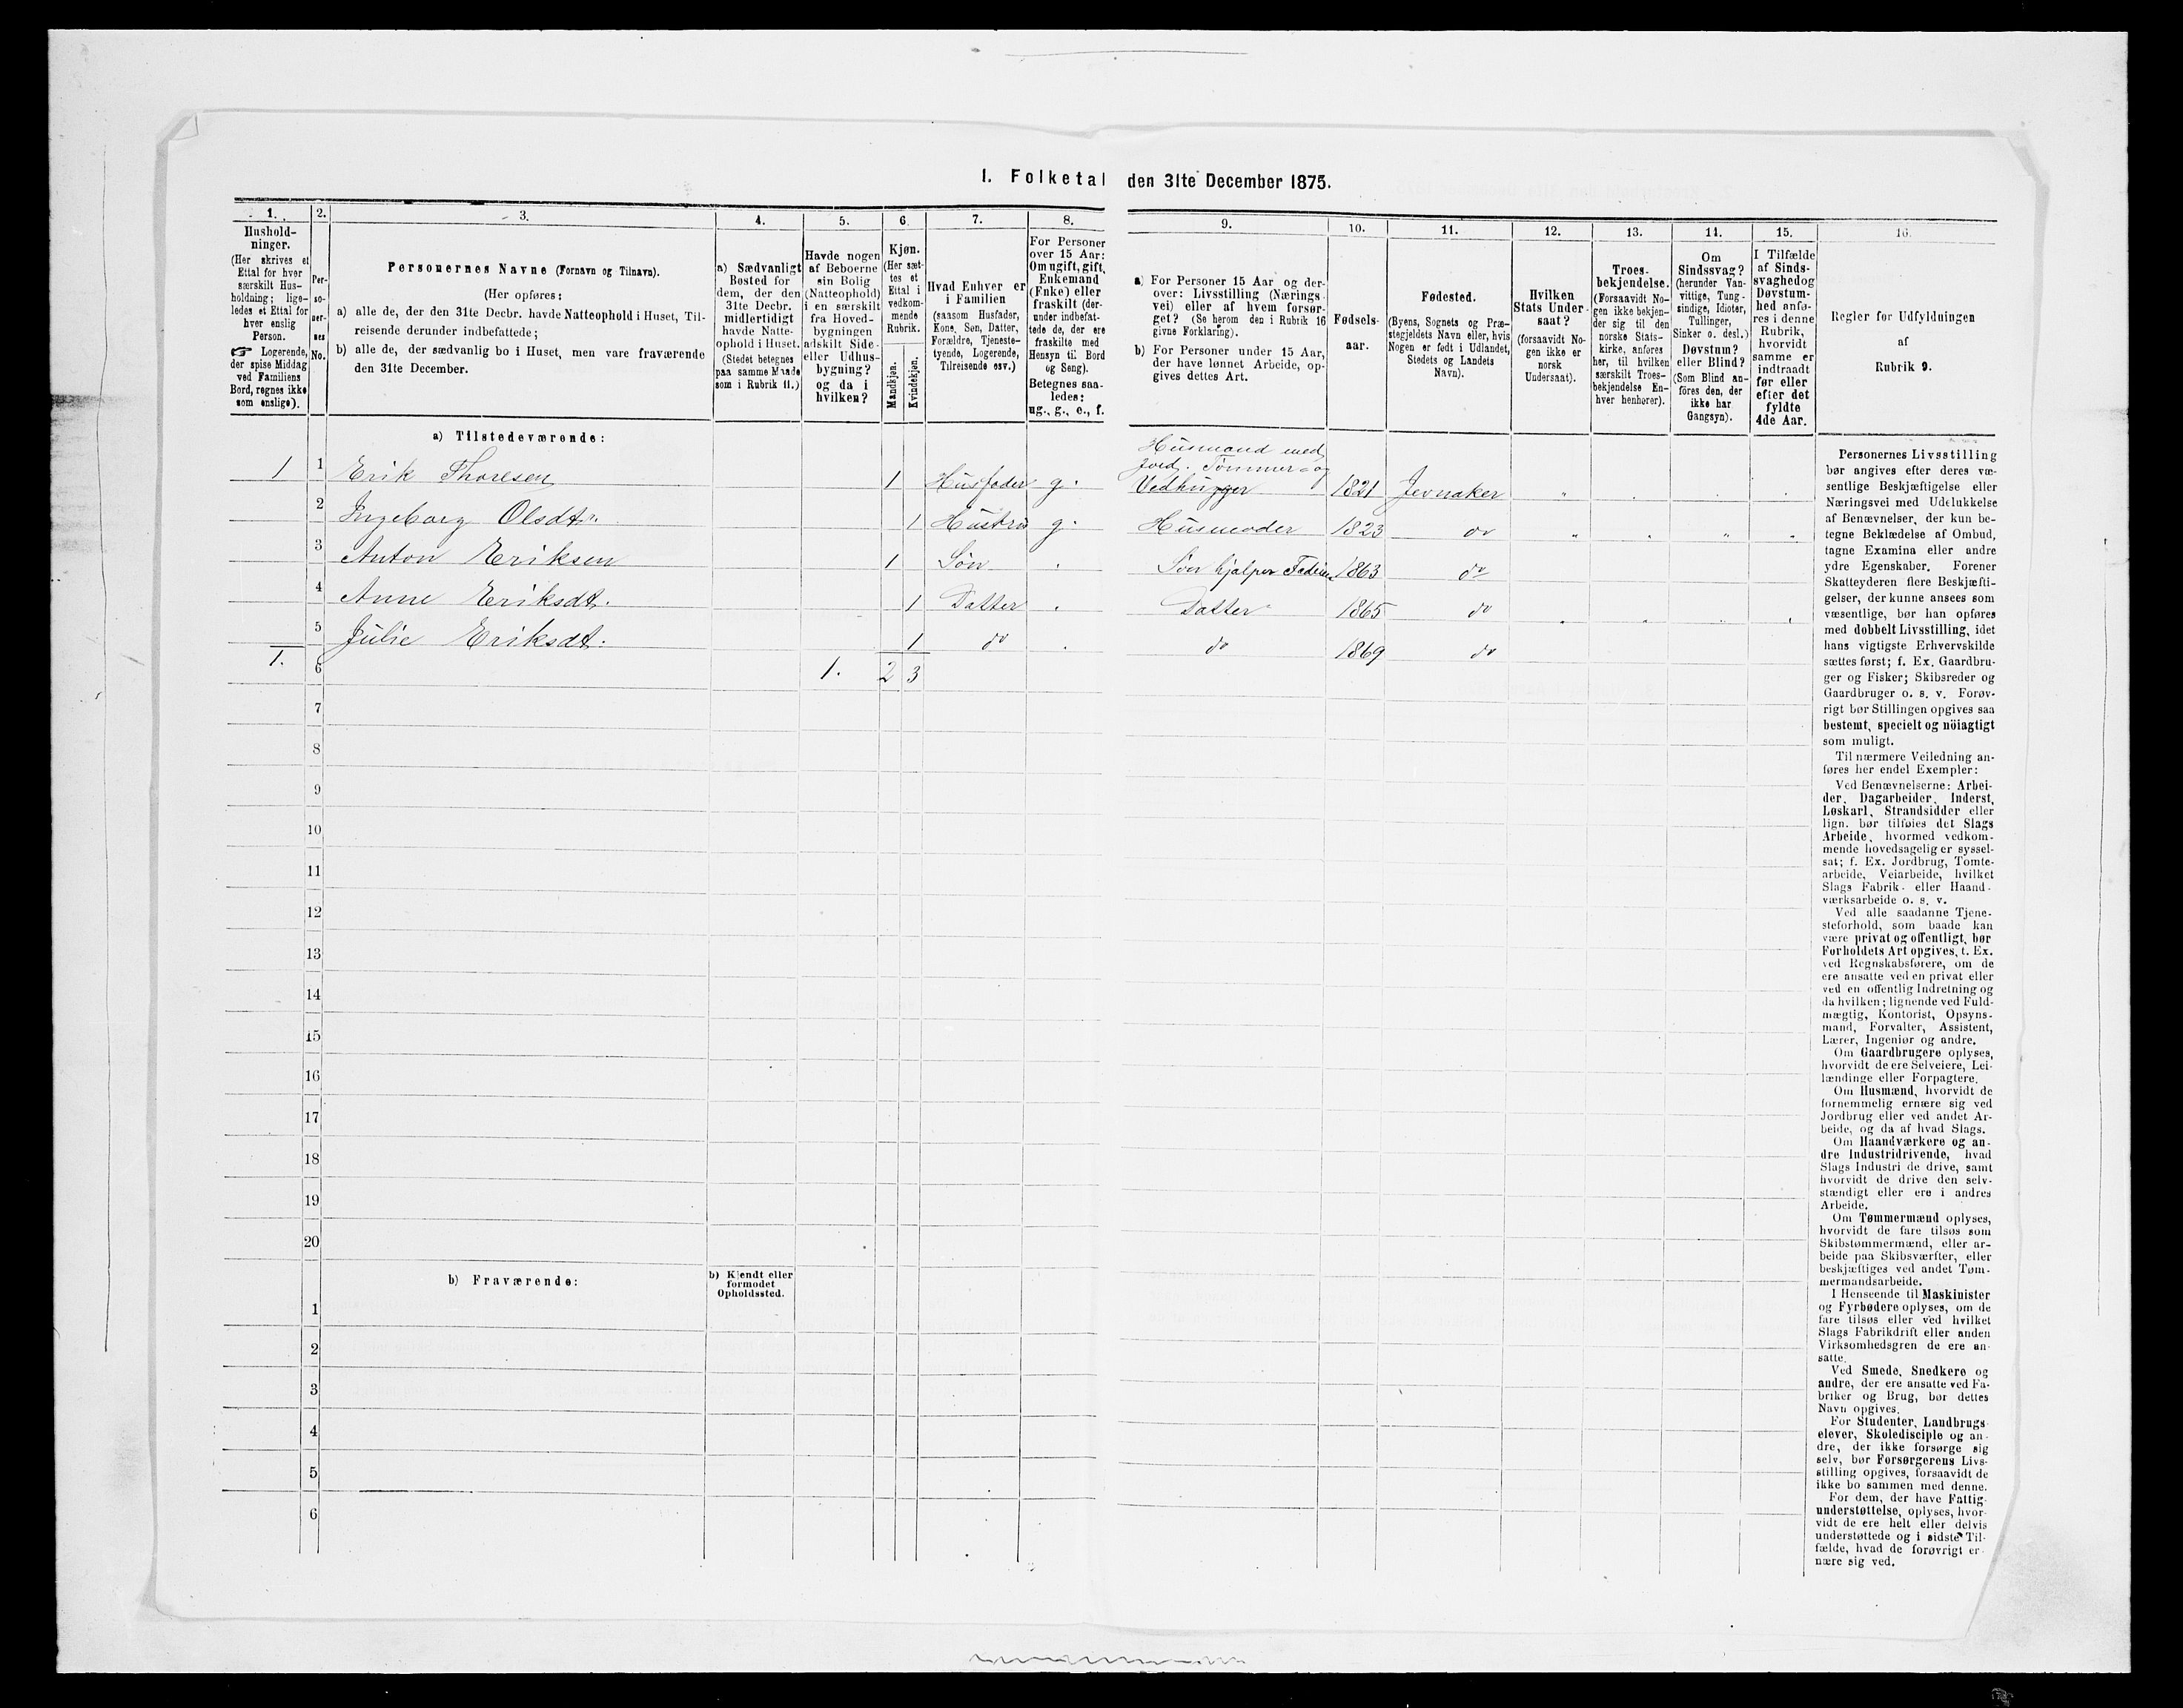 I. Folketal den 31te December 1875.
1.
Hushold-
ninger.
(Her skrives et
Ettal for hver
særskilt Hus-
holdning; lige-
ledes et Ettal for
hver enslig
Person.
☞ Logerende,
der spise Middag
ved Familiens
Bord, regnes ikke
som enslige).
2.
Per-
so-
ner-
nes
No.
3.
Personernes Navne (Fornavn og Tilnavn).
(Her opføres:
a) alle de, der den 31te Decbr. havde Natteophold i Huset, Til-
reisende derunder indbefattede;
b) alle de, der sædvanlig bo i Huset, men vare fraværende
den 31te December.
4.
a) Sædvanligt
Bosted for
dem, der den
31te Decbr.
midlertidigt
havde Natte-
ophold i Huset.
(Stedet betegnes
paa samme Maade
som i Rubrik 11.)
5.
Havde nogen
af Beboerne
sin Bolig
(Natteophold)
i en særskilt
fra Hoved-
bygningen
adskilt Side-
eller Udhus-
bygning?
og da i
hvilken?
6.
Kjøn.
(Her sæt-
tes et
Ettal i
vedkom-
mende
Rubrik.
Mandkjøn.
Kvindekjøn.
7.
Hvad Enhver er
i Familien
(saasom Husfader,
Kone, Søn, Datter,
Forældre, Tjeneste-
tyende, Logerende,
Tilreisende osv.)
8.
For Personer
over 15 Aar:
Om ugift, gift,
Enkemand
(Enke) eller
fraskilt (der-
under indbefat-
tede de, der ere
fraskilte med
Hensyn til Bord
og Seng).
Betegnes saa-
ledes:
ug., g., e., f.
9.
a) For Personer 15 Aar og der-
over: Livsstilling (Nærings-
vei) eller af hvem forsør-
get? (Se herom den i Rubrik 16
givne Forklaring).
b) For Personer under 15 Aar,
der have lønnet Arbeide, op-
gives dettes Art.
10.
Fødsels-
aar.
11.
Fødested.
(Byens, Sognets og Præ-
stegjeldets Navn eller, hvis
Nogen er født i Udlandet,
Stedets og Landets
Navn).
12.
Hvilken
Stats Under-
saat?
(forsaavidt No-
gen ikke er
norsk
Undersaat).
13.
Troes-
bekjendelse.
(Forsaavidt No-
gen ikke bekjen-
der sig til den
norske Stats-
kirke, anføres
her, til hvilken
særskilt Troes-
bekjendelse En-
hver henhører).
14.
Om
Sindssvag?
(herunder Van-
vittige, Tung-
sindige, Idioter,
Tullinger,
Sinker o. desl.)
Døvstum?
eller Blind?
(Som Blind an-
føres den, der
ikke har
Gangsyn).
15.
I Tilfælde
af Sinds-
svaghed og
Døvstum-
hed anfø-
res i denne
Rubrik,
hvorvidt
samme er
indtraadt
før eller
efter det
fyldte
4de Aar.
16.
Regler for Udfyldningen
af
Rubrik 9.
a) Tilstedeværende:
Husmand med
Jord. Tømmer- og
1 1 Erik Thoresen 1 Husfader g. Vedhugger 1821 Jevnaker
2 Ingeborg Olsdtr. 1 Hustru g. Husmoder 1823 do
3 Anton Eriksen 1 Søn Søn hjelper Faderen 1863 do
4 Anne Eriksdt. 1 Datter Datter 1865 do
5 Julie Eriksdt. 1 do do 1869 do
1. 6 1. 2 3
7
8
9
10
11
12
13
14
15
16
17
18
19
20
b) Fraværende:
b) Kjendt eller
formodet
Opholdssted.
1
2
3
4
5
6
Personernes Livsstilling
bør angives efter deres væ-
sentlige Beskjæftigelse eller
Næringsvei med Udelukkelse
af Benævnelser, der kun be-
tegne Beklædelse af Ombud,
tagne Examina eller andre
ydre Egenskaber. Forener
Skatteyderen flere Beskjæfti-
gelser, der kunne ansees som
væsentlige, bør han opføres
med dobbelt Livsstilling, idet
hans vigtigste Erhvervskilde
sættes først; f. Ex. Gaardbru-
ger og Fisker; Skibsreder og
Gaardbruger o. s. v. Forøv-
rigt bør Stillingen opgives saa
bestemt, specielt og nöiagtigt
som muligt.
Til nærmere Veiledning an-
føres her endel Exempler:
Ved Benævnelserne: Arbei-
der, Dagarbeider, Inderst,
Løskarl, Strandsidder eller
lign. bør tilføies det Slags
Arbeide, hvormed vedkom-
mende hovedsagelig er syssel-
sat; f. Ex. Jordbrug, Tomte-
arbeide, Veiarbeide, hvilket
Slags Fabrik- eller Haand-
værksarbeide o. s. v.
Ved alle saadanne Tjene-
steforhold, som baade kan
være privat og offentligt, bør
Forholdets Art opgives, t. Ex.
ved Regnskabsførere, om de
ere ansatte ved en privat eller
ved en offentlig Indretning og
da hvilken; lignende ved Fuld-
mægtig, Kontorist, Opsyns-
mand, Forvalter, Assistent,
Lærer, Ingeniør og andre.
Om Gaardbrugere oplyses,
hvorvidt de ere Selveiere, Lei-
lændinge eller Forpagtere.
Om Husmænd, hvorvidt de
fornemmelig ernære sig ved
Jordbrug eller ved andet Ar-
beide, og da af hvad Slags.
Om Haandværkere og an-
dre Industridrivende, hvad
Slags Industri de drive, samt
hvorvidt de drive den selv-
stændigt eller ere i andres
Arbeide.
Om Tømmermænd oplyses,
hvorvidt de fare tilsøs som
Skibstømmermænd, eller ar-
beide paa Skibsværfter, eller
beskjæftiges ved andet Tøm-
mermandsarbeide.
I Henseende til Maskinister
og Fyrbødere oplyses, om de
fare tilsøs eller ved hvilket
Slags Fabrikdrift eller anden
Virksomhedsgren de ere an-
satte.
Ved Smede, Snedkere og
andre, der ere ansatte ved Fa-
briker og Brug, bør dettes
Navn opgives.
For Studenter, Landbrugs-
elever, Skoledisciple og an-
dre, der ikke forsørge sig
selv, bør Forsørgerens Livs-
stilling opgives, forsaavidt de
ikke bo sammen med denne.
For dem, der have Fattig-
understøttelse, oplyses, hvor-
vidt de ere helt eller delvis
understøttede og i sidste Til-
fælde, hvad de forøvrigt er-
nære sig ved.